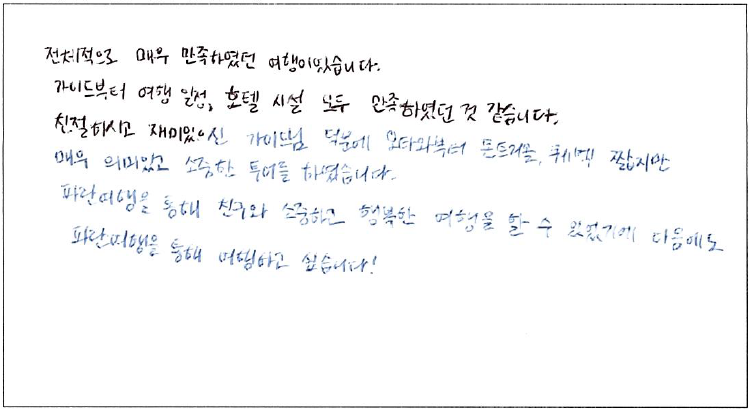 전체적으로 매우 만족하였던 여행이었습니다.
가이드부터 여행 일정, 호텔 시설 모두 만족하였던 것 같습니다.
친절하시고 재미있으신 가이드님 덕분에 오타와부터 몬트리올, 퀘벡 짧지만
매우 의미있고 소중한 투어를 하였습니다.
파란여행을 통해 친구와 소중하고 행복한 여행을 할 수 있었기에 다음에도
파란여행을 통해 여행하고 싶습니다!